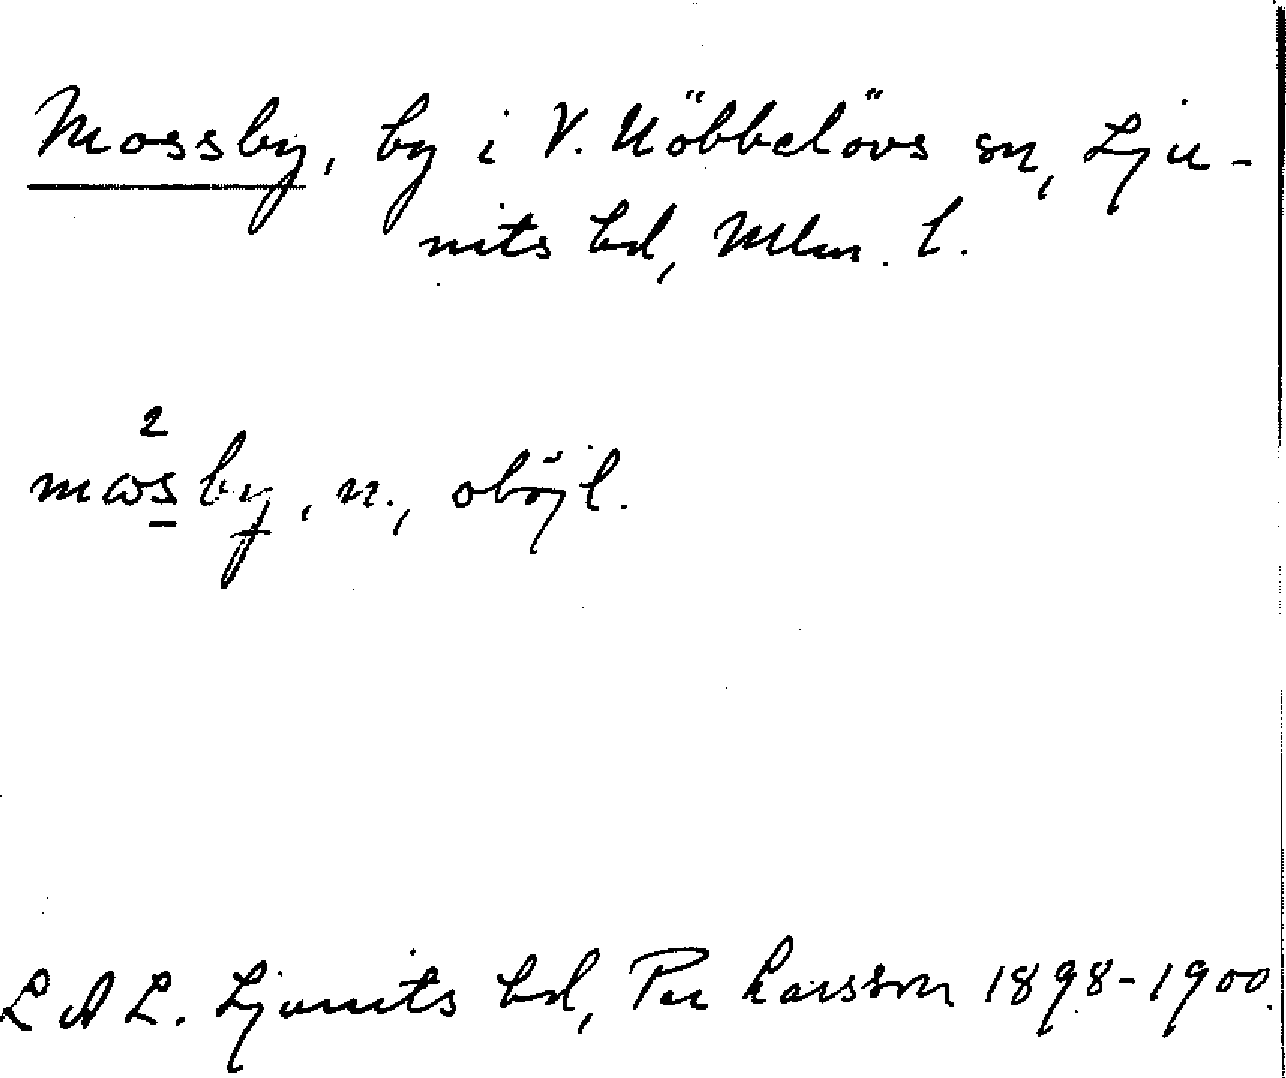 Mossby, by i V. Nöbbelövs sn, Lju-
nits hd, Mlm. l.
2
mɷsby, n., oböjl.
L A L. Ljunits hd, Per Larsson 1898-1900.